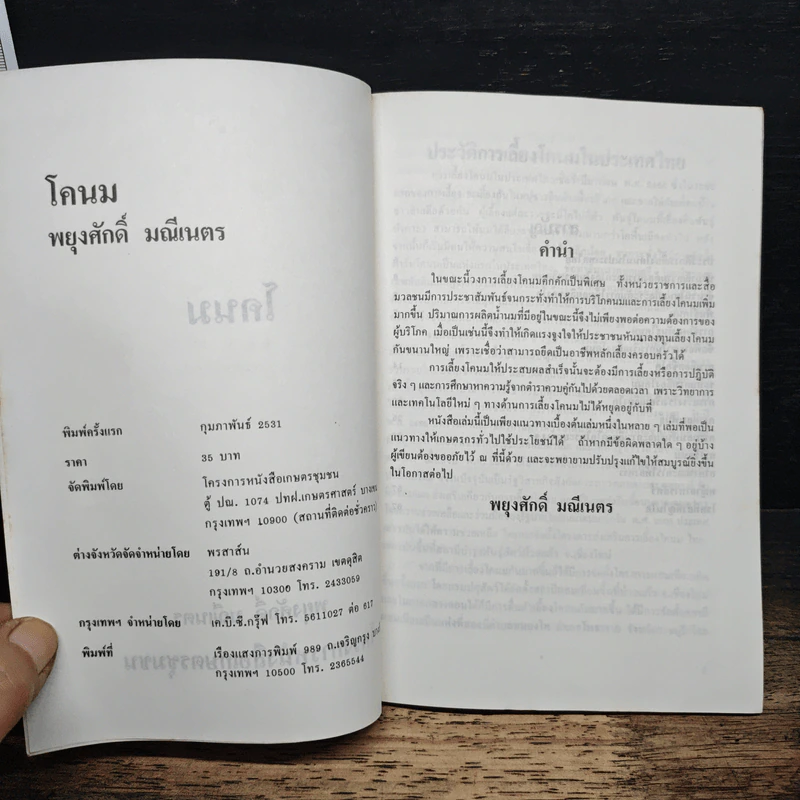 โคนม
พยุงศักดิ์ มณีเนตร
พิมพ์ครั้งแรก กุมภาพันธ์ 2531
ราคา 35 บาท
จัดพิมพ์โดย โครงการหนังสือเกษตรชุมชน
ตู้ ปณ. 1074 ปทฝ.เกษตรศาสตร์
กรุงเทพฯ 10900 (สถานที่ติดต่อชั่วคราว)
ต่างจังหวัดจัดจำหน่ายโดย พรสาส์น
191/8 ถ.อำนวยสงคราม เขตดุสิต
กรุงเทพฯ 10300 โทร. 2433059
กรุงเทพฯ จำหน่ายโดย เค.บี.ซี.กรุ๊ฟ โทร. 5611027 ต่อ 617
พิมพ์ที่ เรืองแสงการพิมพ์ 989 ถ.เจริญกรุง
กรุงเทพฯ 10500 โทร. 2365544
คำนำ
ในขณะนี้วงการเลี้ยงโคนมคึกคักเป็นพิเศษ ทั้งหน่วยราชการและสื่อ
มวลชนมีการประชาสัมพันธ์จนกระทั่งทำให้การบริโภคนมและการเลี้ยงโคนมเพิ่ม
มากขึ้น ปริมาณการผลิตน้ำนมที่มีอยู่ในขณะนี้จึงไม่เพียงพอต่อความต้องการของ
ผู้บริโภค เมื่อเป็นเช่นนี้จึงทำให้เกิดแรงจูงใจให้ประชาชนหันมาลงทุนเลี้ยงโคนม
กันขนานใหญ่ เพราะเชื่อว่าสามารถยึดเป็นอาชีพหลักเลี้ยงครอบครัวได้
การเลี้ยงโคนมให้ประสบผลสำเร็จนั้นจะต้องมีการเลี้ยงหรือการปฏิบัติ
จริง ๆ และการศึกษาหาความรู้จากตำราควบคู่กันไปด้วยตลอดเวลา เพราะวิทยาการ
และเทคโนโลยีใหม่ ๆ ทางด้านการเลี้ยงโคนมไม่ได้หยุดอยู่กับที่
หนังสือเล่มนี้เป็นเพียงแนวทางเบื้องต้นเล่มหนึ่งในหลาย ๆ เล่มที่พอเป็น
แนวทางให้เกษตรกรทั่วไปใช้ประโยชน์ได้ ถ้าหากมีข้อผิดพลาดใด ๆ อยู่บ้าง
ผู้เขียนต้องขออภัยไว้ ณ ที่นี้ด้วย และจะพยายามปรับปรุงแก้ไขให้สมบูรณ์ยิ่งขึ้น
ในโอกาสต่อไป
พยุงศักดิ์ มณีเนตร